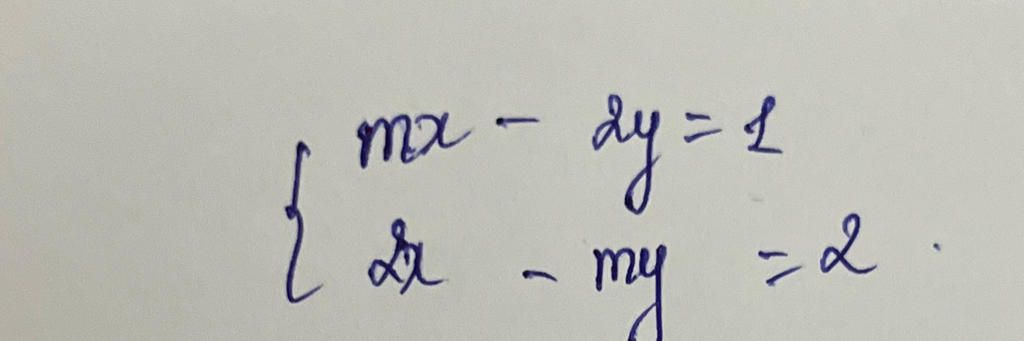 { mx - 2y = 1
2x - my = 2.